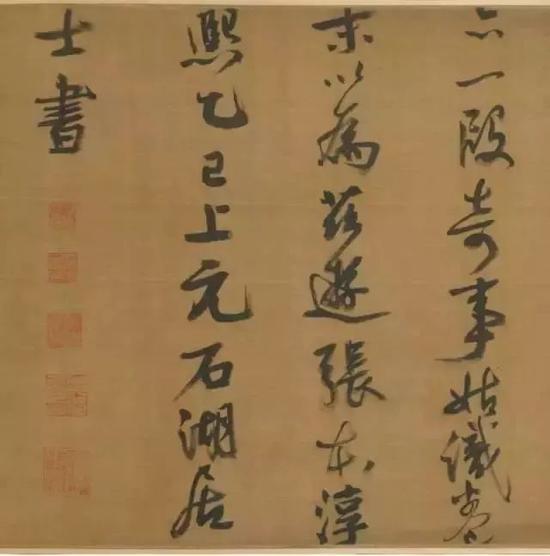 亦一段奇事姑識卷
末以為茲遊張本淳
熙乙巳上元石湖居
士書